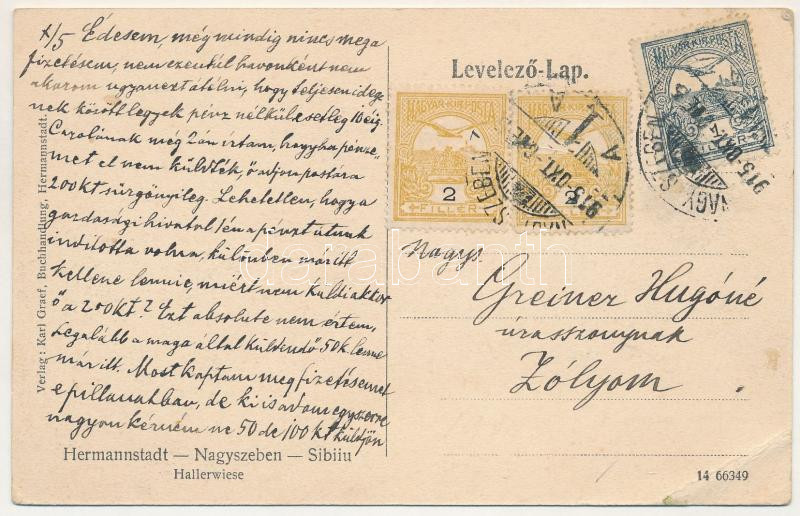 x/5 Édesem, még mindig nincs meg a
fizetésem, nem ezentúl havonként nem
akarom ugyanezt átélni, hogy teljesen idege-
nek között legyek pénz nélkül esetleg 10 eig
Carolának még 2án írtam, hogy ha pénze-
met el nem küldték, ő adjon postára
200kt sürgönyileg. Lehetetlen, hogy a
gazdasági hivatal 1én a pénzt útnak
indította volna, különben már itt
kellene lennie, miért nem küldi akkor
ő a 200kt? Ezt absolute nem értem,
Legalább a maga által küldendő 50k. lenne
már itt. Most kaptam meg fizetésemet
e pillanatban, de ki is adom egyszerre
nagyon kérném ne 50 de 100 kt küldjön
Levelező-Lap.
MAGYAR KIR. POSTA
2
FILLÉR
MAGYAR KIR. POSTA
FILLÉR
MAGYAR KIR. POSTA
NAGYSZEBEN
915 OKT
NAGYSZEBEN
915 OKT
Nagys.
Greiner Hugóné
úrasszonynak
Zólyom
Verlag: Karl Graef, Buchhandlung, Hermannstadt.
Hermannstadt — Nagyszeben — Sibiiu
Hallerwiese
14 66349
darabanth